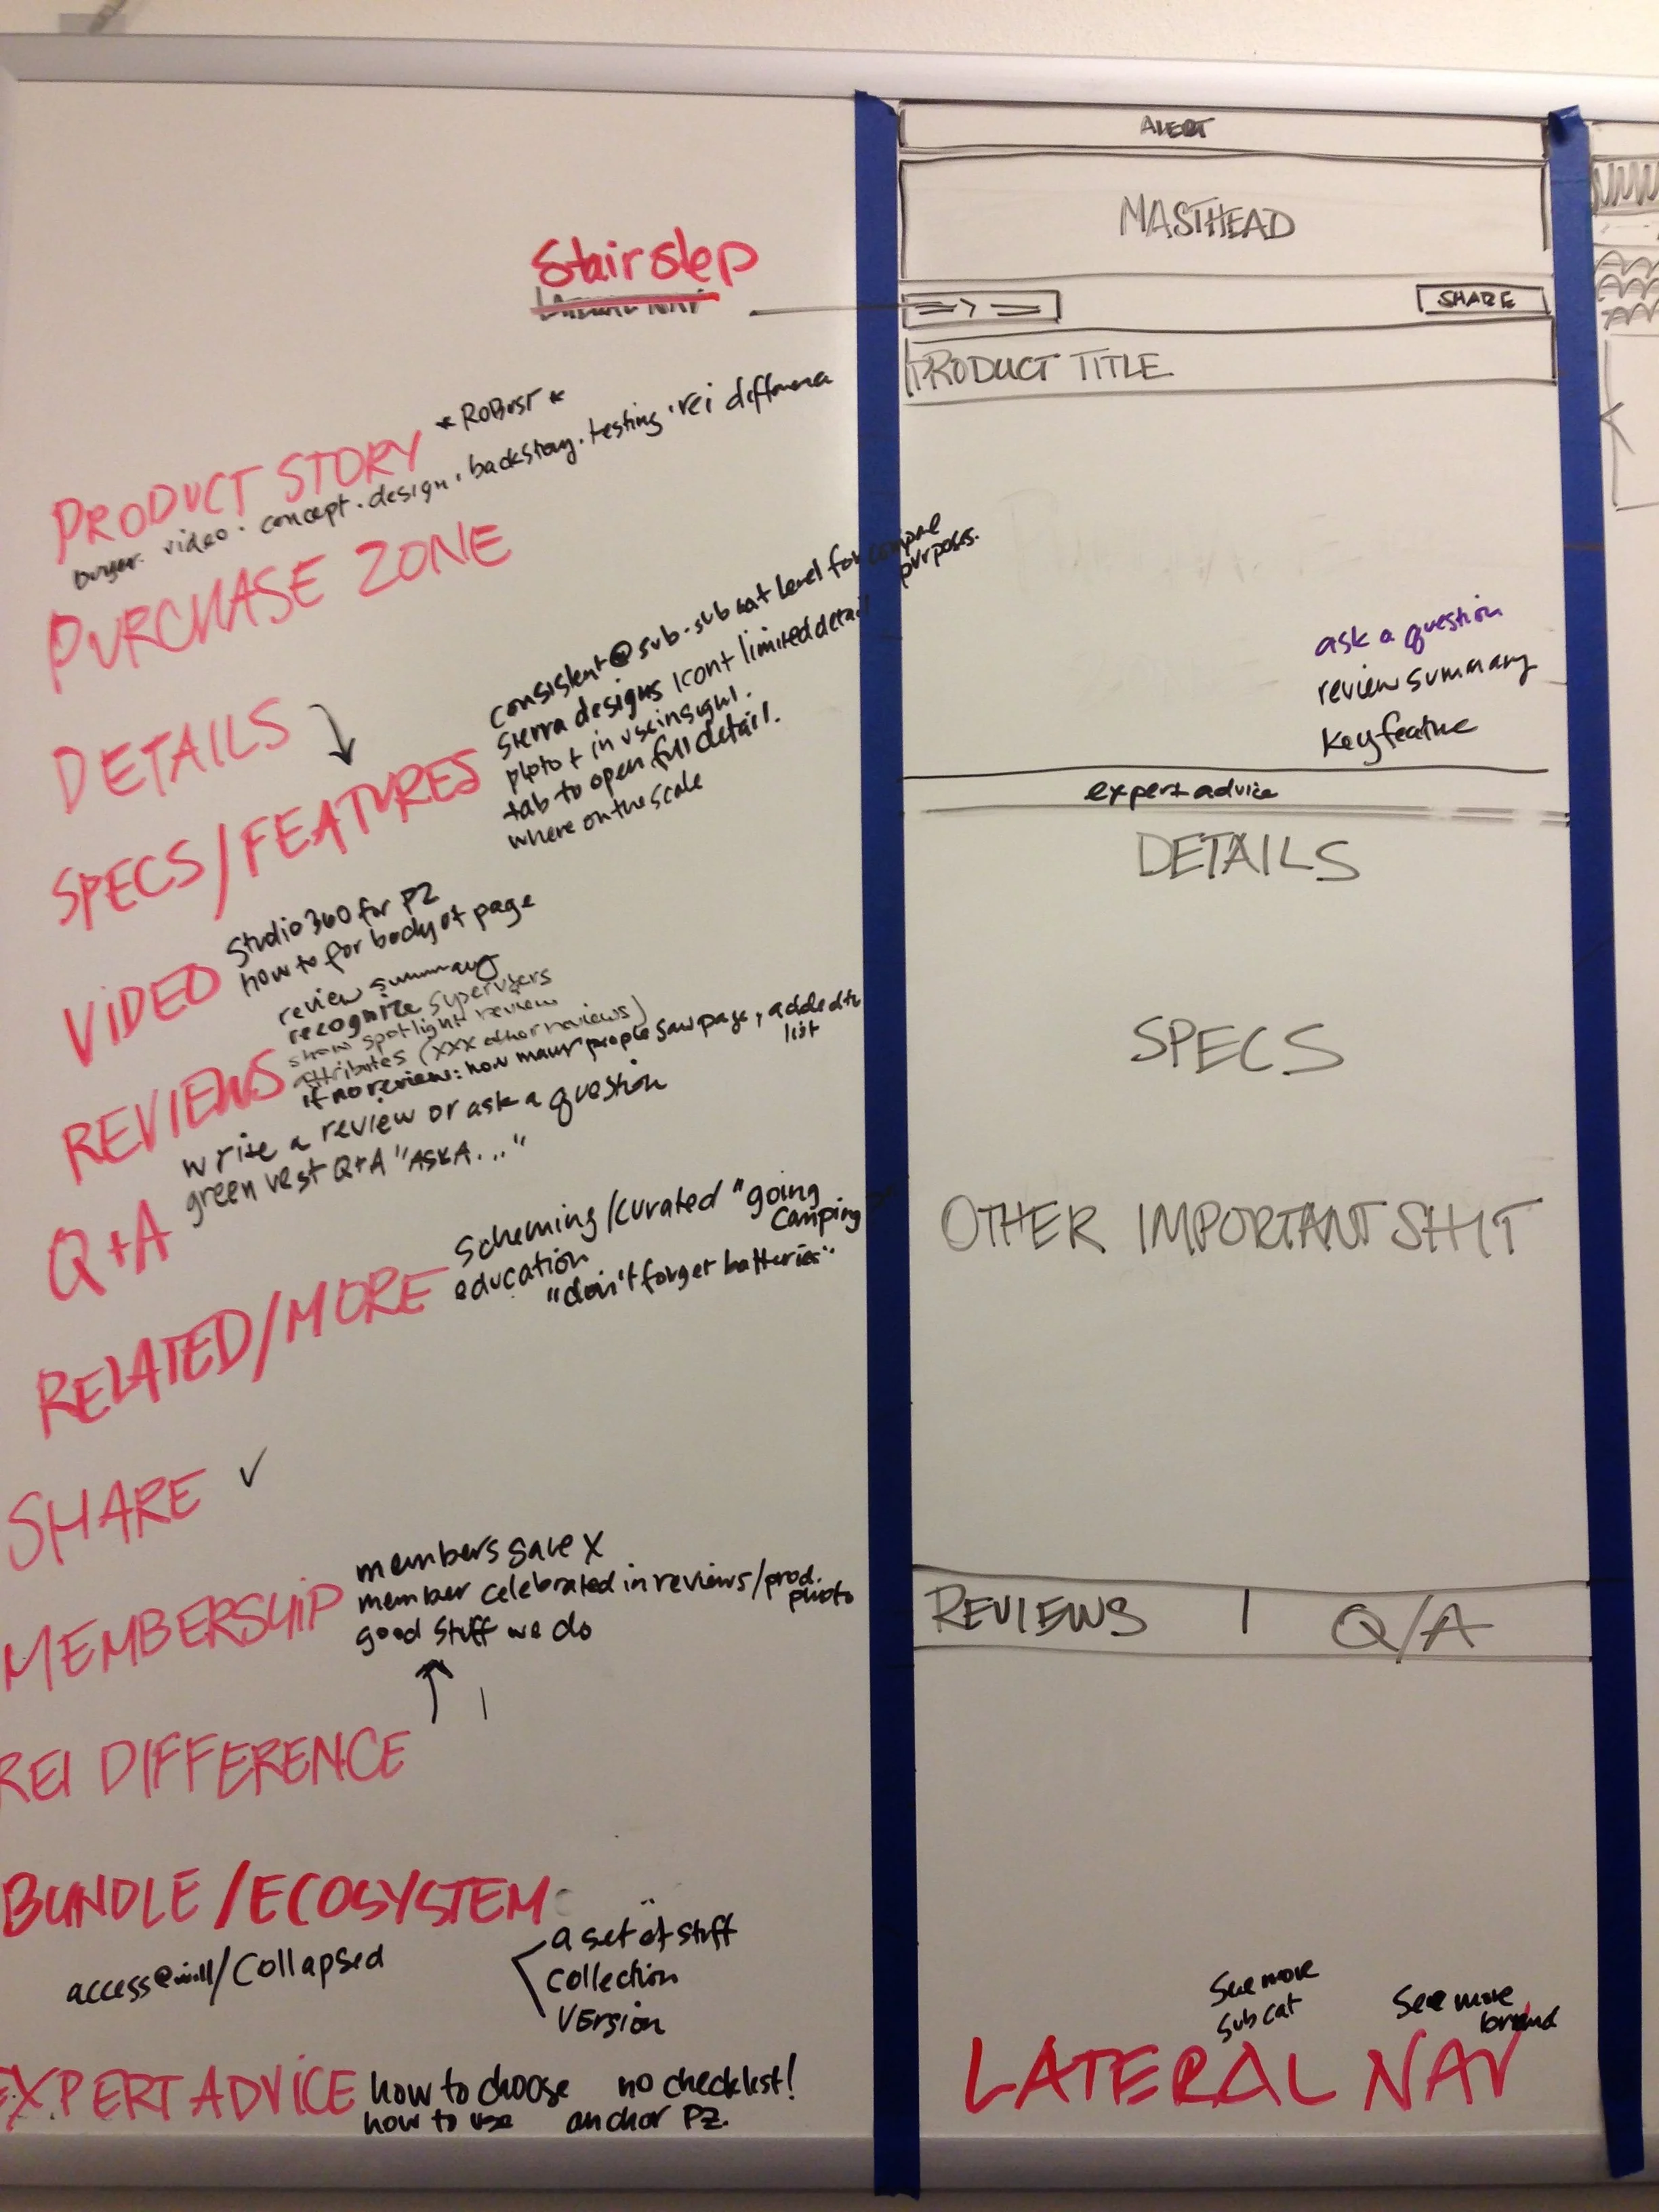 Stairstep
LATERAL NAV
PRODUCT STORY * ROBUST *
buyer. video. concept. design. backstory. testing. rei difference
PURCHASE ZONE
DETAILS
SPECS/FEATURES
consistent @ sub-sub cat level for compare purposes.
sierra designs icont limited detail
photo + in use insight.
tab to open full detail.
where on the scale
VIDEO
Studio 360 for PZ
how to for body of page
REVIEWS
review summary
recognize superusers
show spotlight review
attributes (xxx other reviews)
if no review: how many people saw page, added to list
write a review or ask a question
Q+A
green vest Q+A "ASK A..."
RELATED/MORE
scheming/curated "going camping
education
"don't forget batteries"
SHARE ✓
MEMBERSHIP
members save X
member celebrated in reviews/prod. photo
good stuff we do
REI DIFFERENCE
BUNDLE/ECOSYSTEM
access@will/collapsed
a set of stuff
collection
version
EXPERT ADVICE
how to choose
how to use
no checklist!
anchor PZ.
ALERT
MASTHEAD
SHARE
PRODUCT TITLE
ask a question
review summary
key feature
expert advice
DETAILS
SPECS
OTHER IMPORTANT SHIT
REVIEWS | Q/A
See more
sub cat
See more
brand
LATERAL NAV